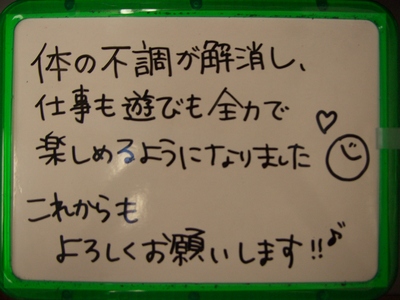 体の不調が解消し、
仕事も遊びも全力で
楽しめるようになりました
これからも
よろしくお願いします!!♪